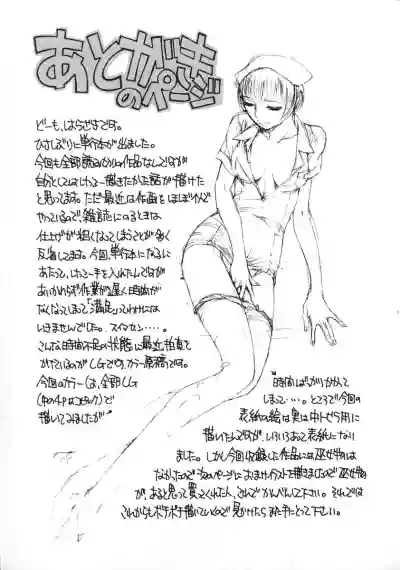 あとがき
のページ
どーも、しろうざきです。
ひさしぶりに単行本が出ました。
今回も全部読みきり作品なんですが
自分としてはけっこー描きたかった話が描けた
と思ってます。ただ最近は作画をほぼひとりで
やっているので、雑誌にのるときは
仕上げが粗くなってしまうことが多く
反省してます。今回、単行本になるに
あたって、けっこー手を入れたんですが
あいかわらず作業が遅く、時間が
なくなってしまって「満足」ってわけには
いきませんでした。スイマセン‥‥。
こんな時間不足の状態に最近拍車を
かけているのがCGで、カラー原稿です。
今回のカラーは、全部CG
(中の4Pはコミック)で
描いてみましたが
時間ばっかりかかって
しまって‥‥。ところで今回の
表紙の絵は実は中トビラ用に
描いたんですが、いろいろあって表紙にない
ました。しかし今回収録した作品には巫女物は
なかったので次のページにおまけイラストを描きましたので巫女物
が、あると思って買ってくれた人、それでかんべんして下さい。それでは
これからもボチボチ描いていくので見かけたらまた手にとって下さい。